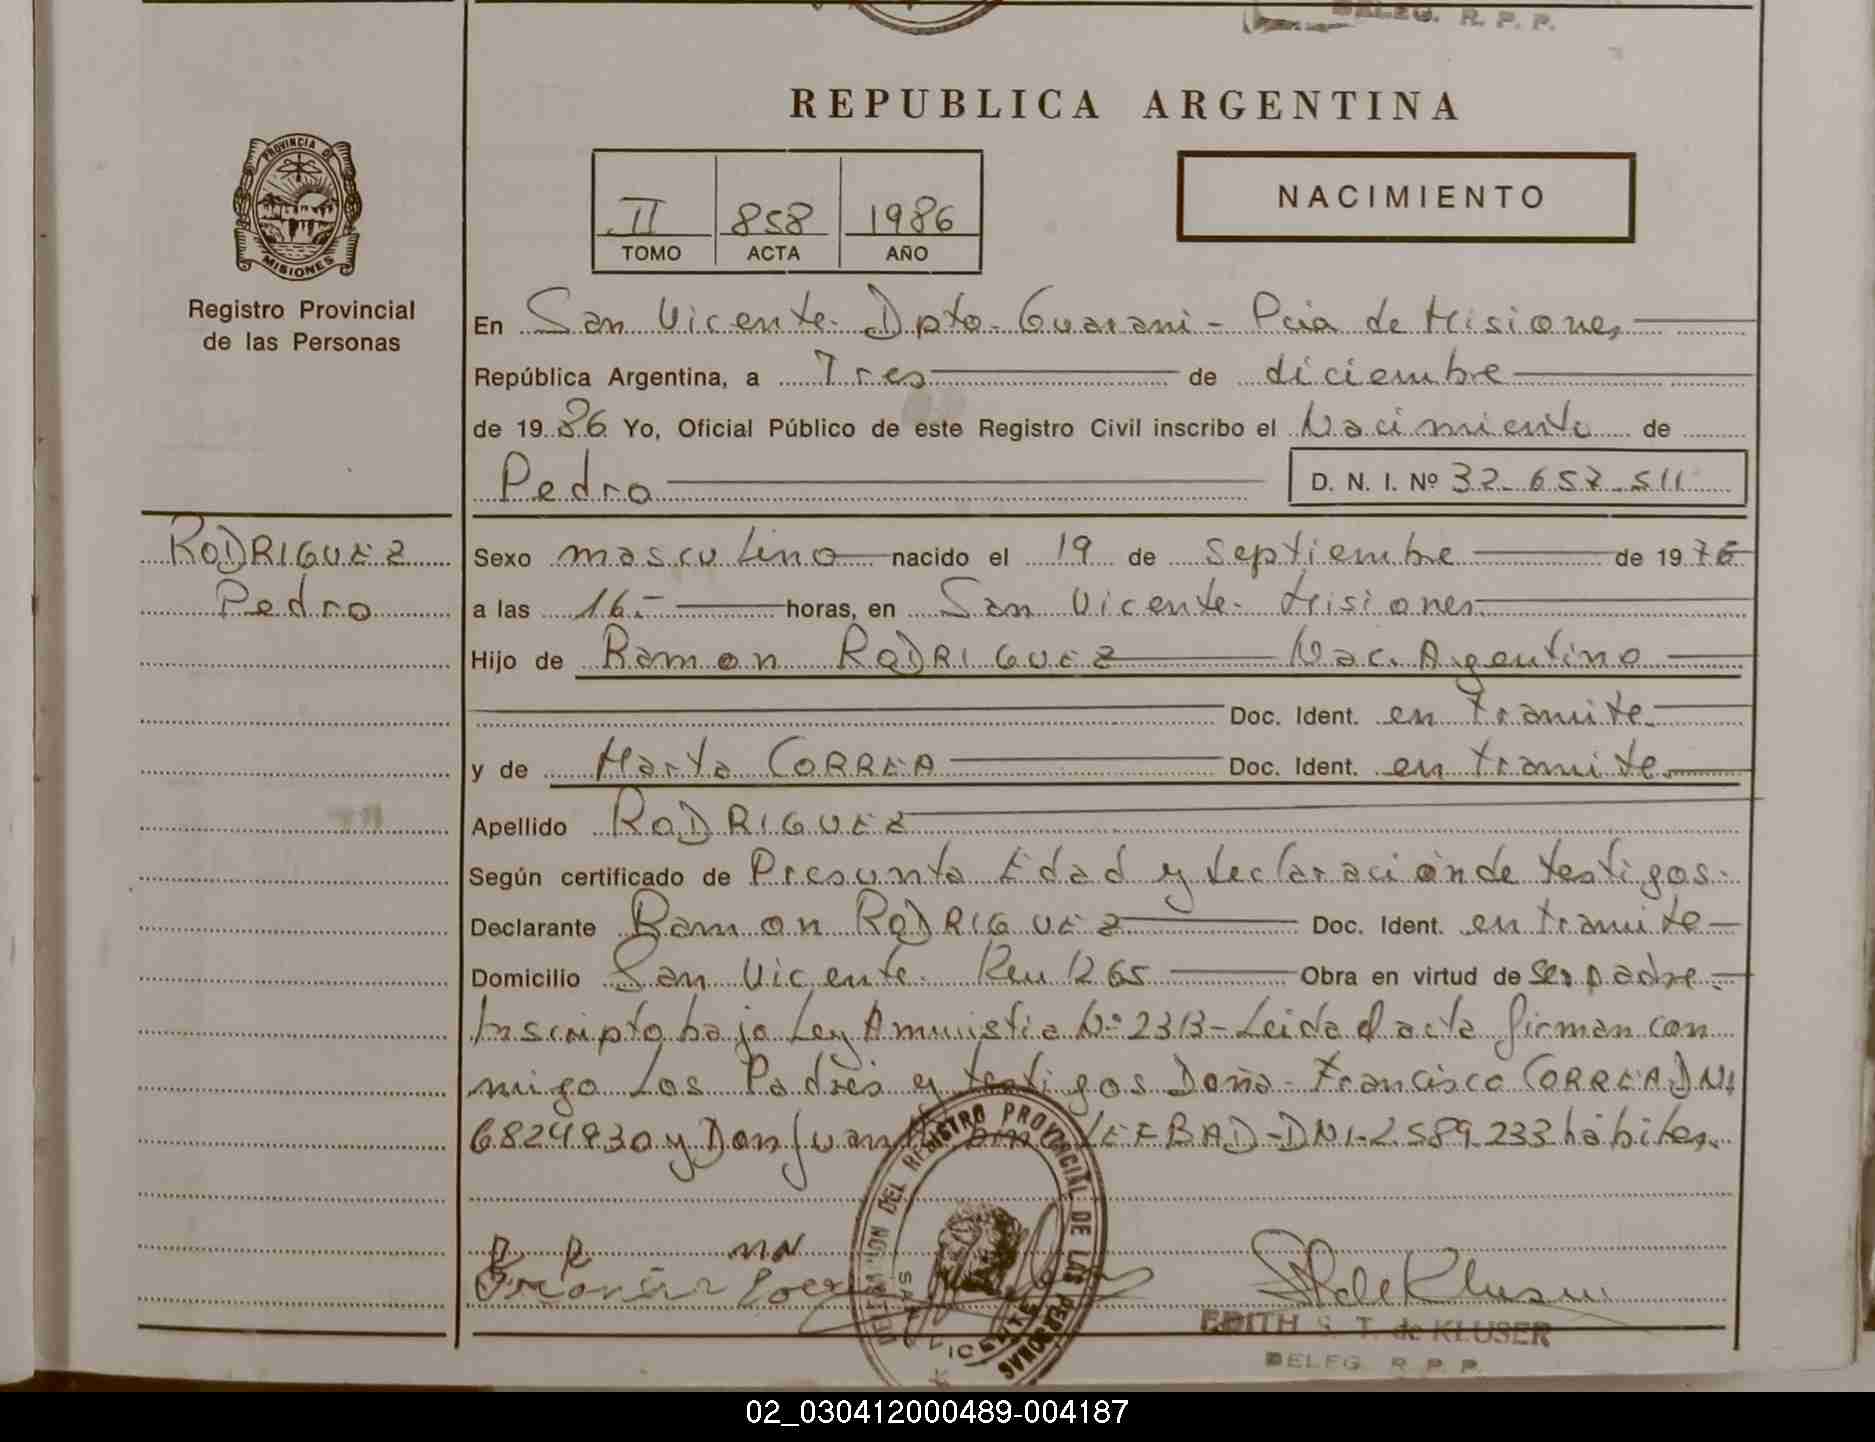 DELEG. R. P. P.
REPUBLICA ARGENTINA
PROVINCIA DE
MISIONES
Registro Provincial
de las Personas
II 858 1986
TOMO ACTA AÑO
NACIMIENTO
En San Vicente - Dpto - Guarani - Pcia de Misiones
República Argentina, a Tres de diciembre
de 19 86 Yo, Oficial Público de este Registro Civil inscribo el Nacimiento de
Pedro D. N. I. Nº 32.657.511
RODRIGUEZ
Pedro
Sexo masculino nacido el 19 de septiembre de 19 76
a las 16.- horas, en San Vicente - Misiones
Hijo de Ramon RODRIGUEZ Nac. Argentino
Doc. Ident. en tramite
y de Marta CORREA Doc. Ident. en tramite
Apellido RODRIGUEZ
Según certificado de Presunta Edad y declaración de testigos.
Declarante Ramon RODRIGUEZ Doc. Ident. en tramite
Domicilio San Vicente 1265 Obra en virtud de ser padre.
Inscripto bajo Ley Amnistia Nº 2313 - Leida el acta firman con
migo los Padres y testigos Doña Francisca CORREA DNI
6824930 y Don Juan DNI 2589233 habiles.
DELEGACION DEL REGISTRO PROVINCIAL DE LAS PERSONAS
SAN VICENTE
EDITH S. T. de KLUSER
DELEG. R. P. P.
02_030412000489-004187